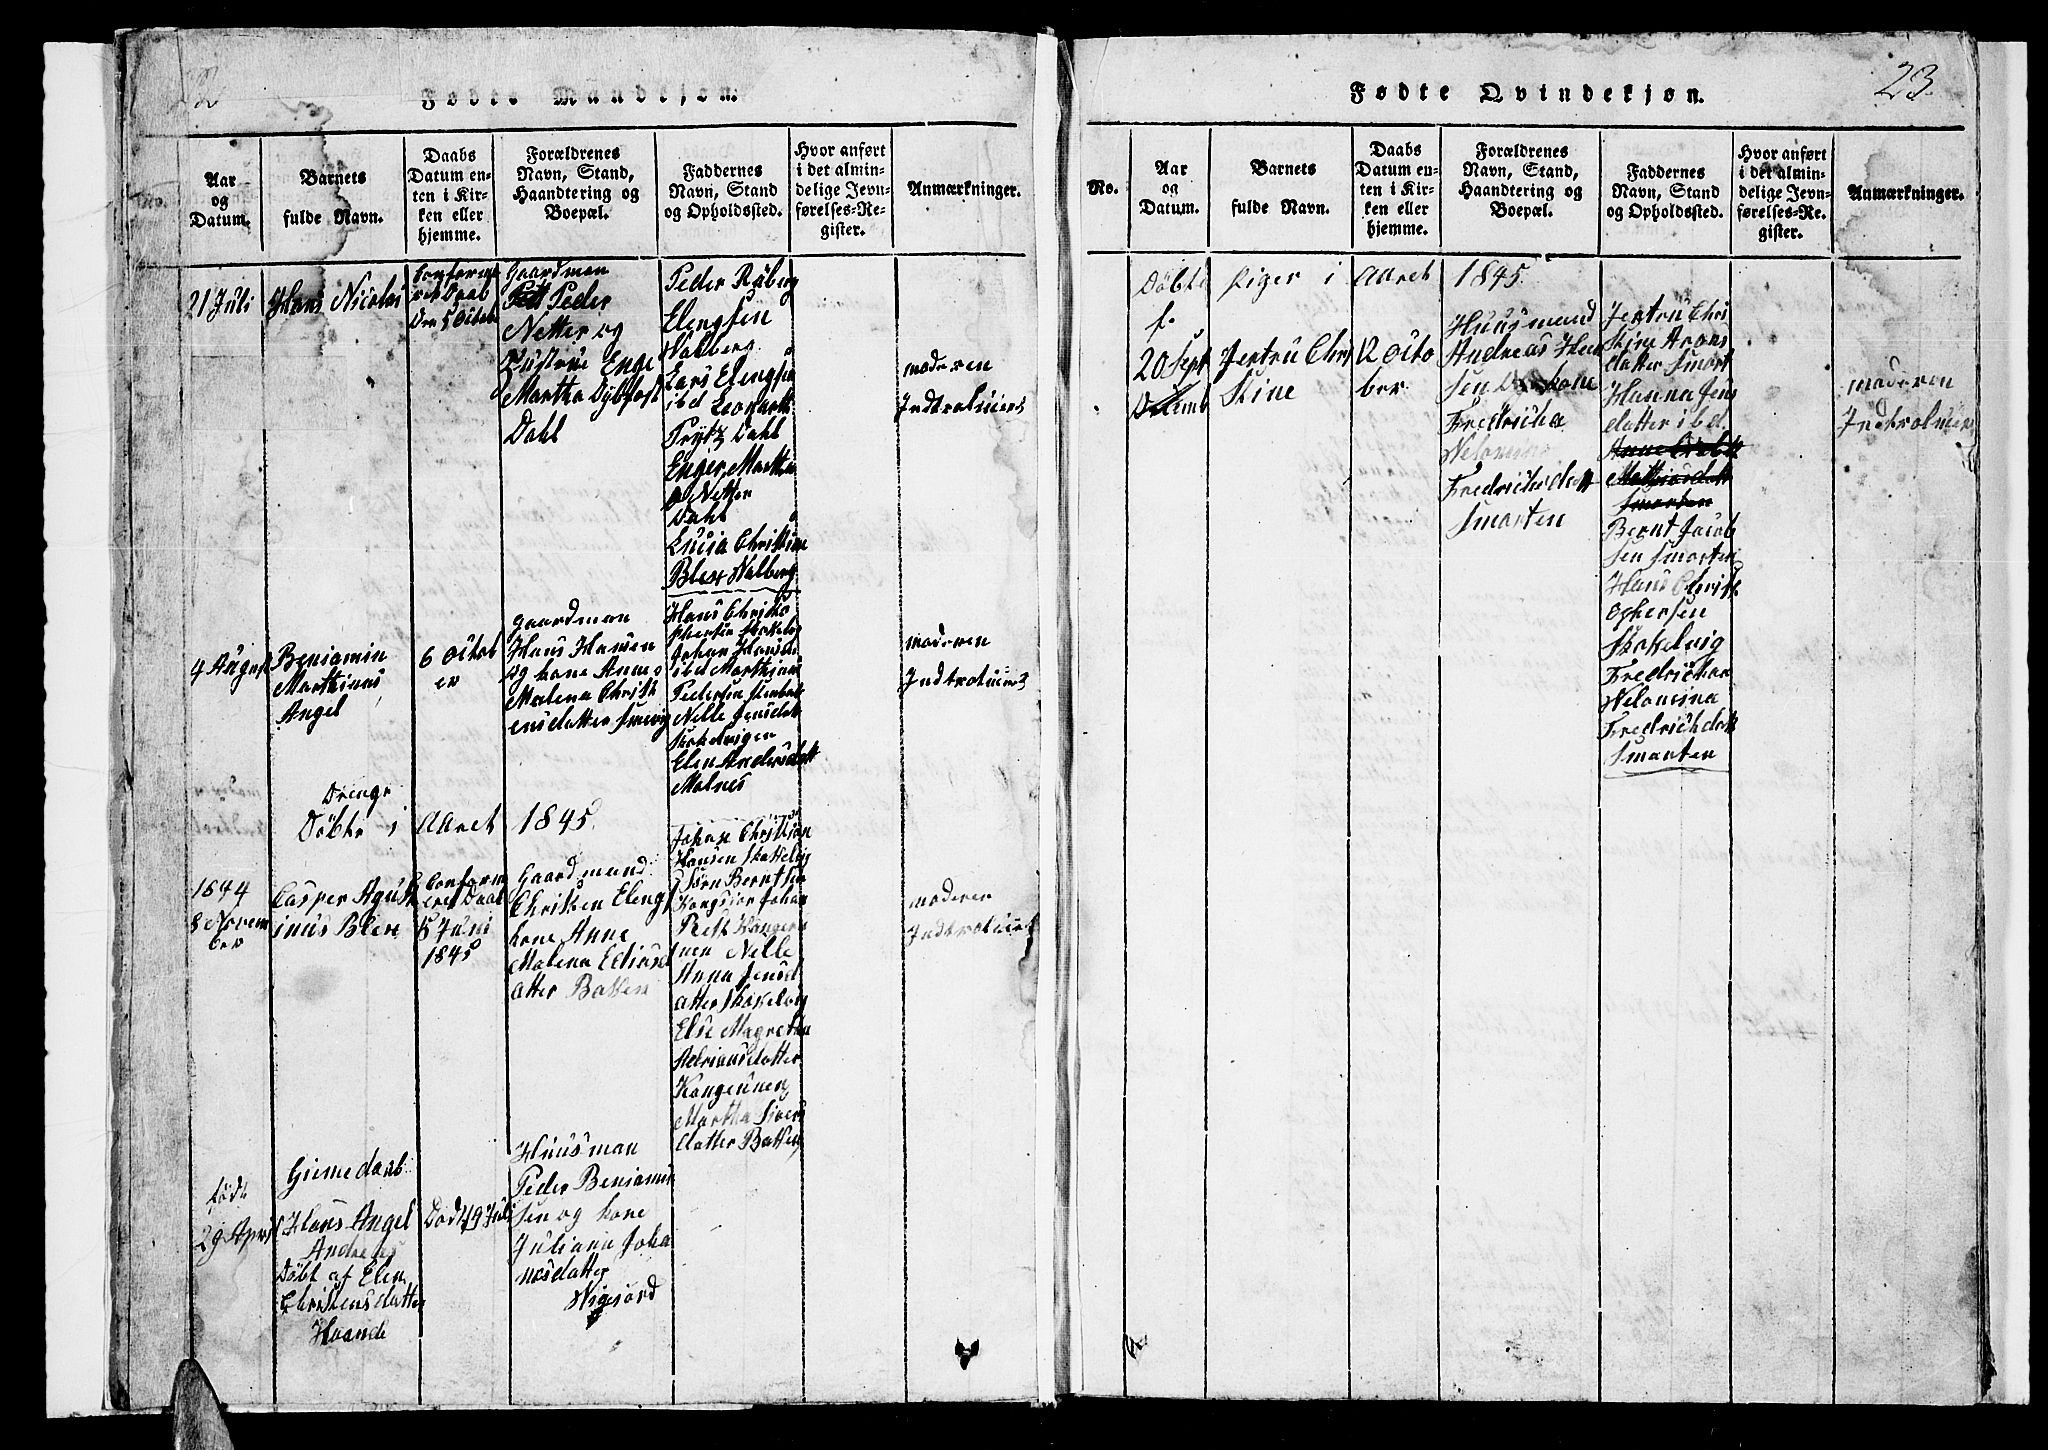 Fødte Mandekjøn.
Aar
og
Datum.
Barnets
fulde Navn.
Daabs
Datum en-
ten i Kir-
ken eller
hjemme.
Forældrenes
Navn, Stand,
Haandtering og
Boepæl.
Faddernes
Navn, Stand
og Opholdssted.
Hvor anført
i det almin-
delige Jevn-
førelses-Re-
gister.
Anmærkninger.
21 Juli
Hans Nicolai
Conformi
ret Daab
Den 5 Octob
Gaardman
Peder
Netter og
Hustrue Enge
Martha Dybfost
Dahl
Peder Røberg
Elengsen
Valberg
Lars Elengsen
ibd Leonartt
Prytz Dahl
Enger Martha
Netter
Dahl
Lucia Christine
Blex Valberg
moderen
Indtroluiert
4 August
Beniamin
Marthinus
Angel
6 Octob
er
gaardman
Hans Hansen
og kone Anne
Malena Christ
ensdatter Smorig
Hans Christo
phersen Skokelvig
Johan Hansen
ibd Marthinus
Pedersen
Nelle Jensdatt
Skokelvigen
Elen Andersdatt
Molnes
moderen
Indtroluiert
Drenge
Döbte i Aaret 1845
1844
8 Novem
ber
Casper Agust
inus Blex
Conform
eret Daab
15 Juni
1845
Gaardmand
Christen Elengs
kone Anne
Malena Eliasd
atter Bakken
Johan Christian
Hansen Skokelvig
Sörn Berntsen
Kongsjor Johan
Rist Kongsu
nen Nelle
Anna Jensd
atter Skokelvig
Else Magretha
Adriansdatter
Kongeunen
Martha Sivers
datter Bakken
moderen
Indtroluiert
födt
29 April
Giemedaab
Hans Angel
Andreas
Döbt af Elen
Christensdatter
Haande
Död 19 Juli
Huusman
Peder Beniamin
sen og kone
Juliana Joha
nesdatter
Nigeiord
23.
Fødte Qvindekjøn.
No.
Aar
og
Datum.
Barnets
fulde Navn.
Daabs
Datum en-
ten i Kir-
ken eller
hjemme.
Forældrenes
Navn, Stand,
Haandtering og
Boepæl.
Faddernes
Navn, Stand
og Opholdssted.
Hvor anført
i det almin-
delige Jevn-
førelses-Re-
gister.
Anmærkninger.
Döbte Piger i Aaret 1845.
f.
20 Sept
Jertru Chri
Stine
12 Octo
ber
Huusmand
Andreas Han
sen og kone
Fredricha
Velomina
Fredrichsdatt
Smorten
Jertru Chri
stine Arons
dater Smort
Hanna Jens
datter ibd.
Anne
Mathiasdatt
Smorten
Bernt Jacob
sen Smorten
Hans Christ
ophersen
Skokelvig
Fredrichan
Velomina
Fredrichdatt
Smorten
moderen
Indtroluiert